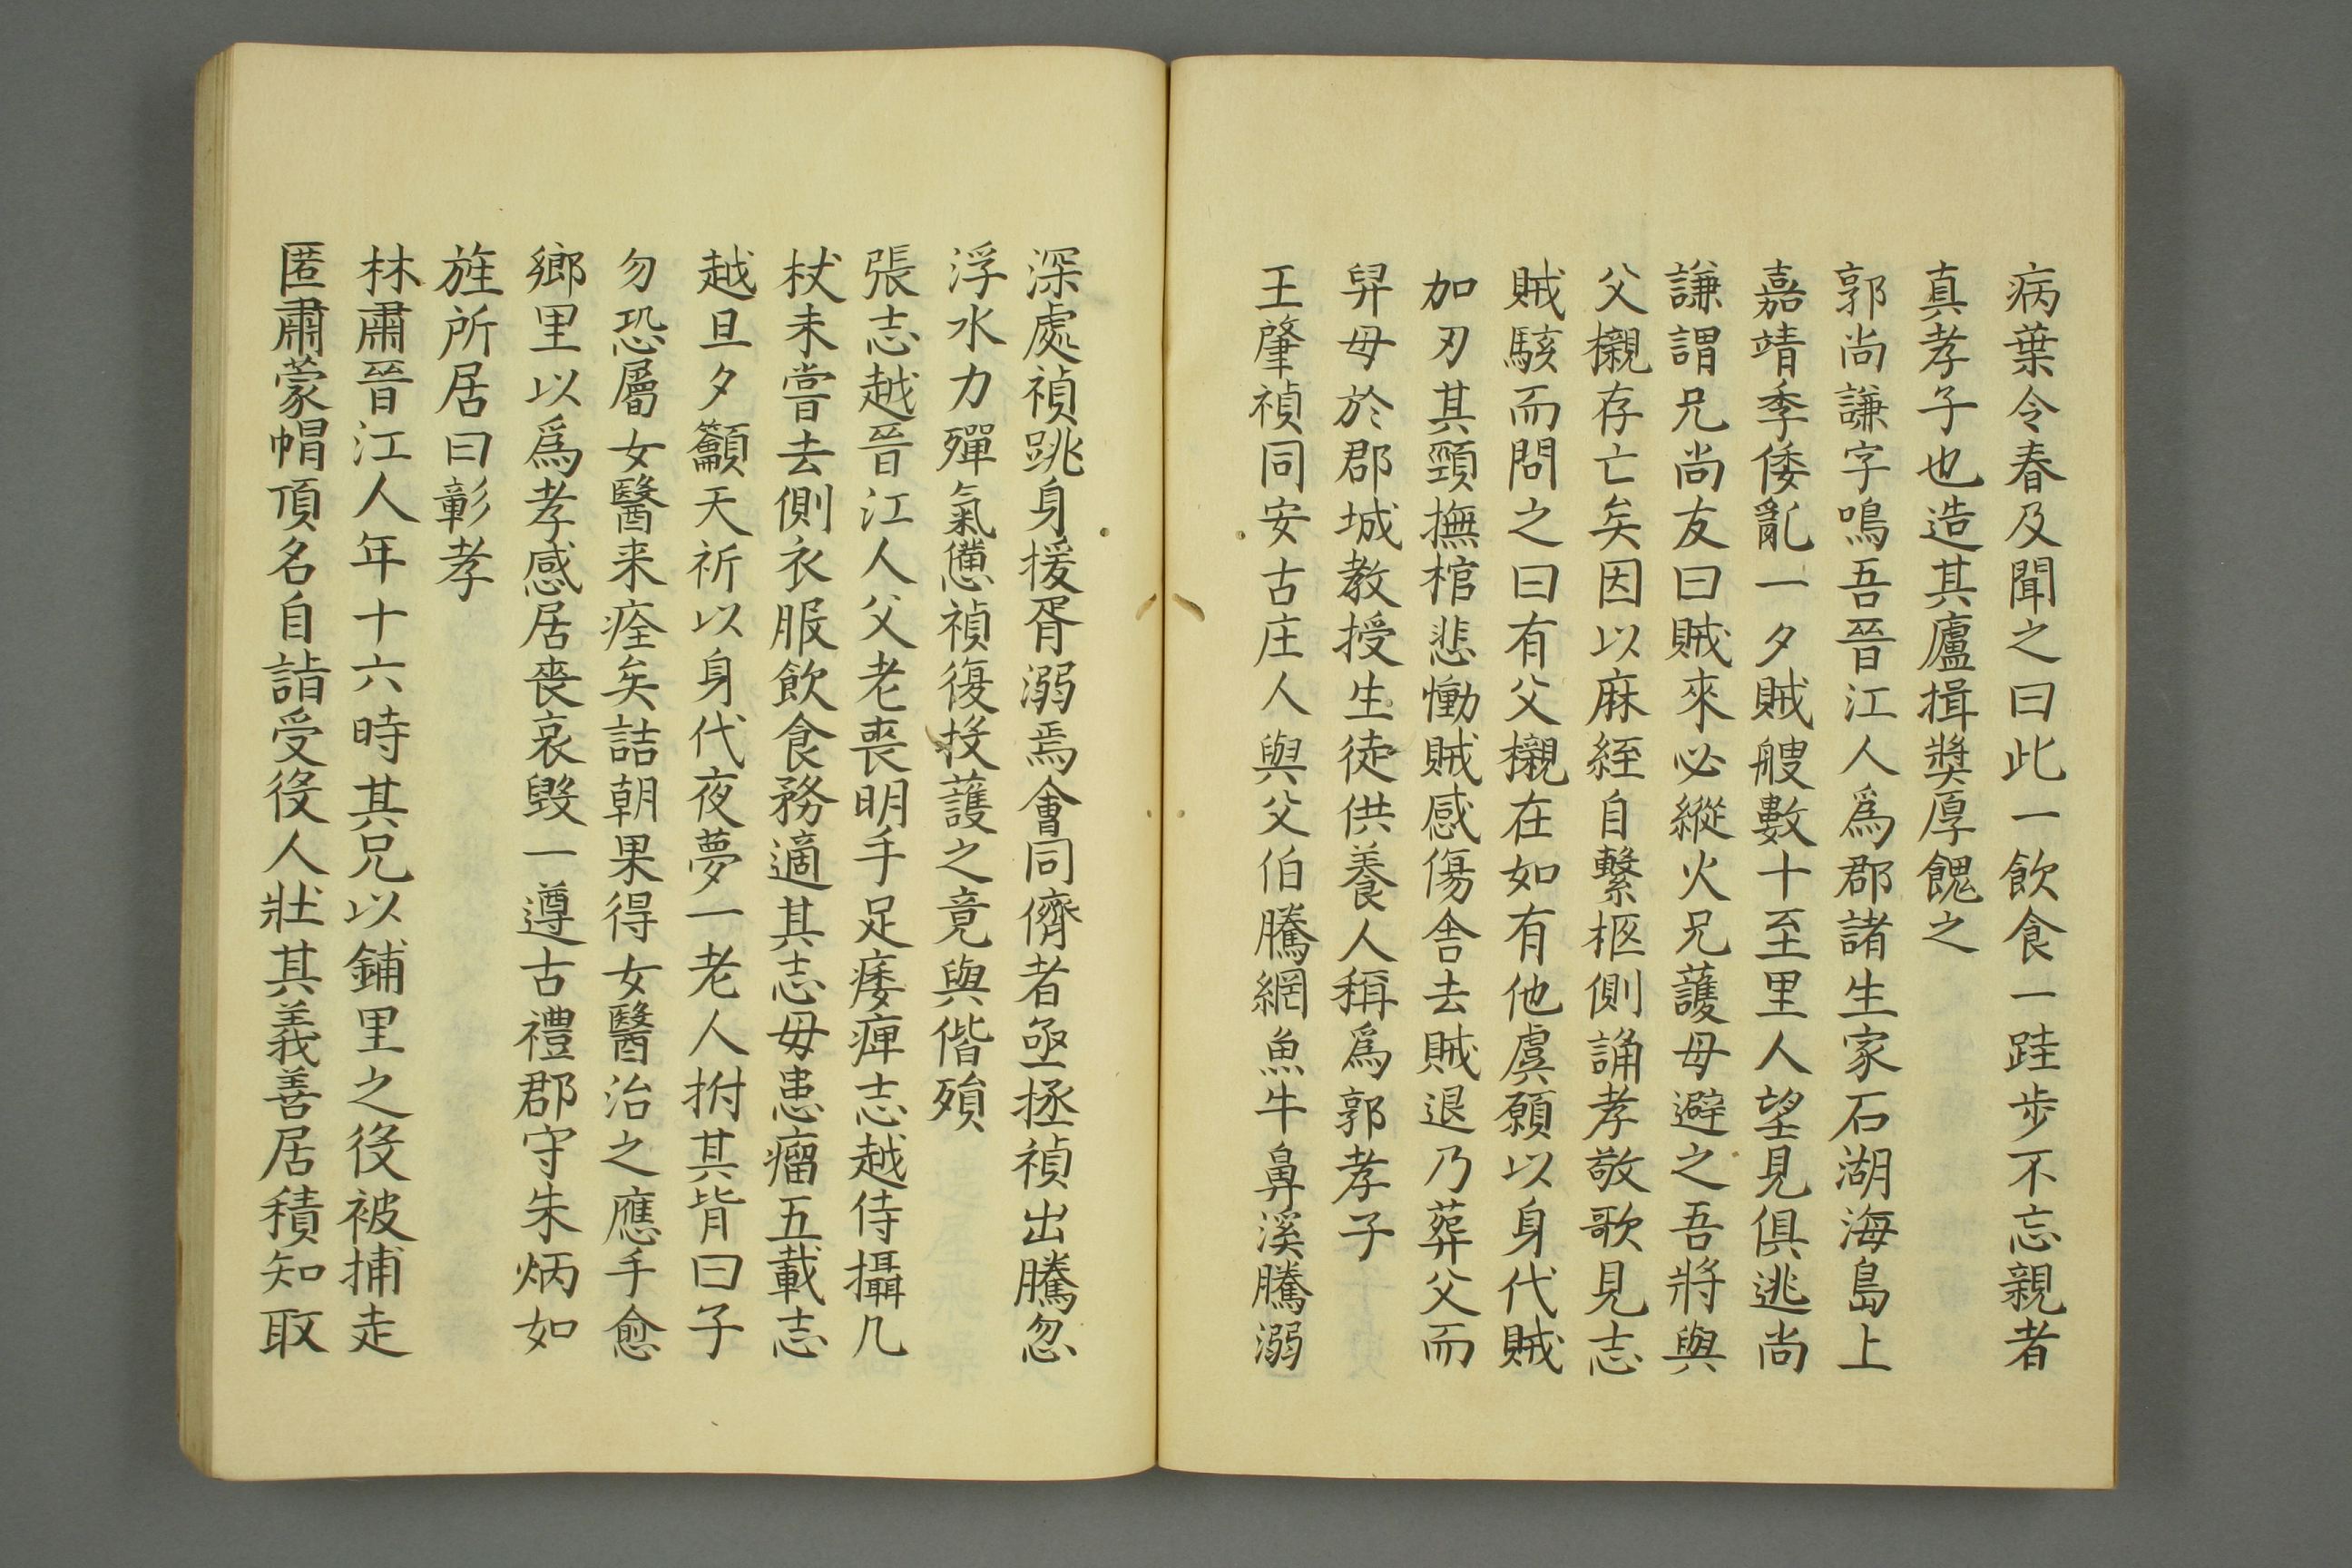 病葉令春及聞之曰此一飲食一跬步不忘親者
真孝子也造其廬揖獎厚餽之
郭尚謙字鳴吾晉江人爲郡諸生家石湖海島上
嘉靖季倭亂一夕賊艘數十至里人望見俱逃尚
謙謂兄尚友曰賊來必縱火兄護母避之吾將與
父櫬存亡矣因以麻絰自繫柩側誦孝敬歌見志
賊駭而問之曰有父櫬在如有他虞願以身代賊
加刃其頸撫棺悲慟賊感傷舍去賊退乃葬父而
舁母於郡城教授生徒供養人稱爲郭孝子
王肇禎同安古庄人與父伯騰網魚牛鼻溪騰溺
深處禎跳身援胥溺焉會同儕者亟拯禎出騰忽
浮水力殫氣憊禎復投護之竟與偕殞
張志越晉江人父老喪明手足痿痺志越侍攝几
杖未嘗去側衣服飲食務適其志母患瘤五載志
越旦夕籲天祈以身代夜夢一老人拊其背曰子
勿恐屬女醫来痊矣詰朝果得女醫治之應手愈
鄉里以爲孝感居喪哀毀一遵古禮郡守朱炳如
旌所居曰彰孝
林肅晉江人年十六時其兄以鋪里之役被捕走
匿肅蒙帽頂名自詣受役人壯其義善居積知取